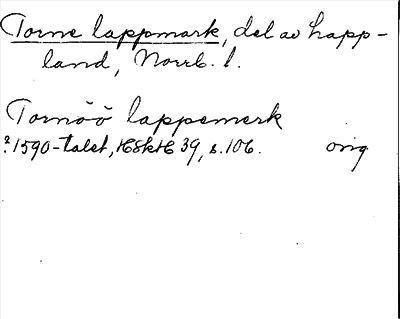 Torne lappmark, del av Lapp-
land, Norrb. l.
Tornöö lappemerk
?1590-talet, HSkH 39, s. 106. orig